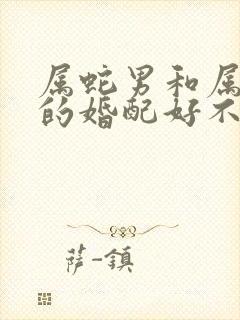 属蛇男和属
的婚配好不
萨-镇